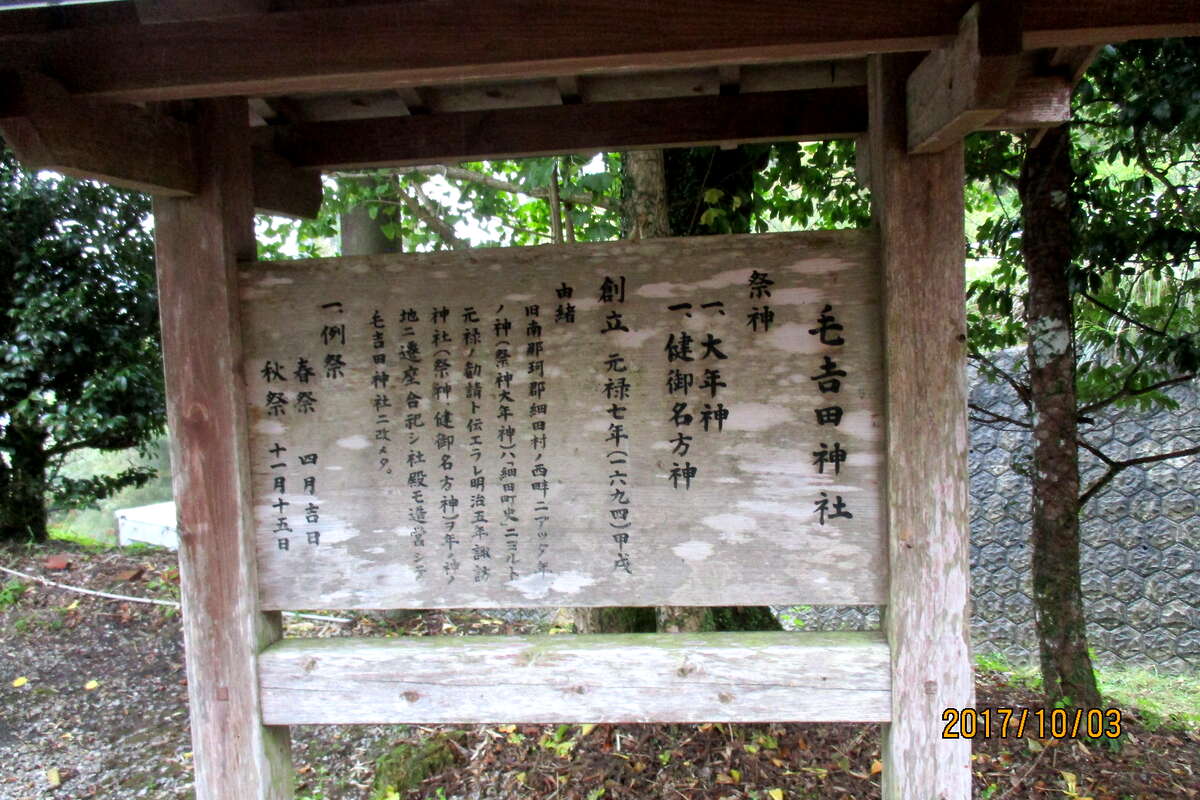 毛吉田神社
祭神
一、大年神
一、健御名方神
創立 元禄七年(一六九四)甲戌
由緒
旧南那珂郡細田村ノ西畔ニアッタ年
ノ神(祭神大年神)ハ「細田町史」ニヨルト
元禄ノ勧請ト伝エラレ明治五年諏訪
神社(祭神健御名方神)ヲ年ノ神ノ
地ニ遷座合祀シ社殿モ造営シテ
毛吉田神社ニ改メタ。
一、例祭
春祭 四月吉日
秋祭 十一月十五日
2017/10/03